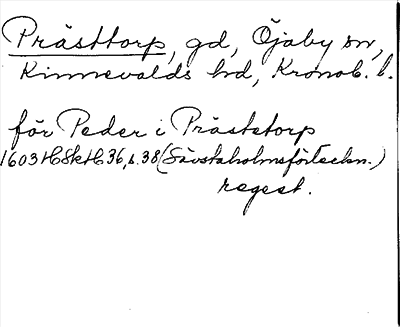 Prästtorp, gd, Öjaby sn,
Kinnevalds hd, Kronob. l.
för Peder i Präststorp
1603 HSkH 36, s. 38 (Sävstaholmsförteckn.)
regest.